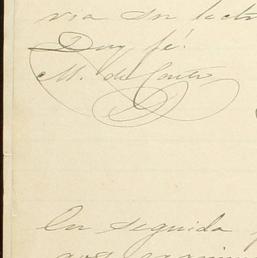 via su lectu
Doy fé.
M. de Castro
En seguida